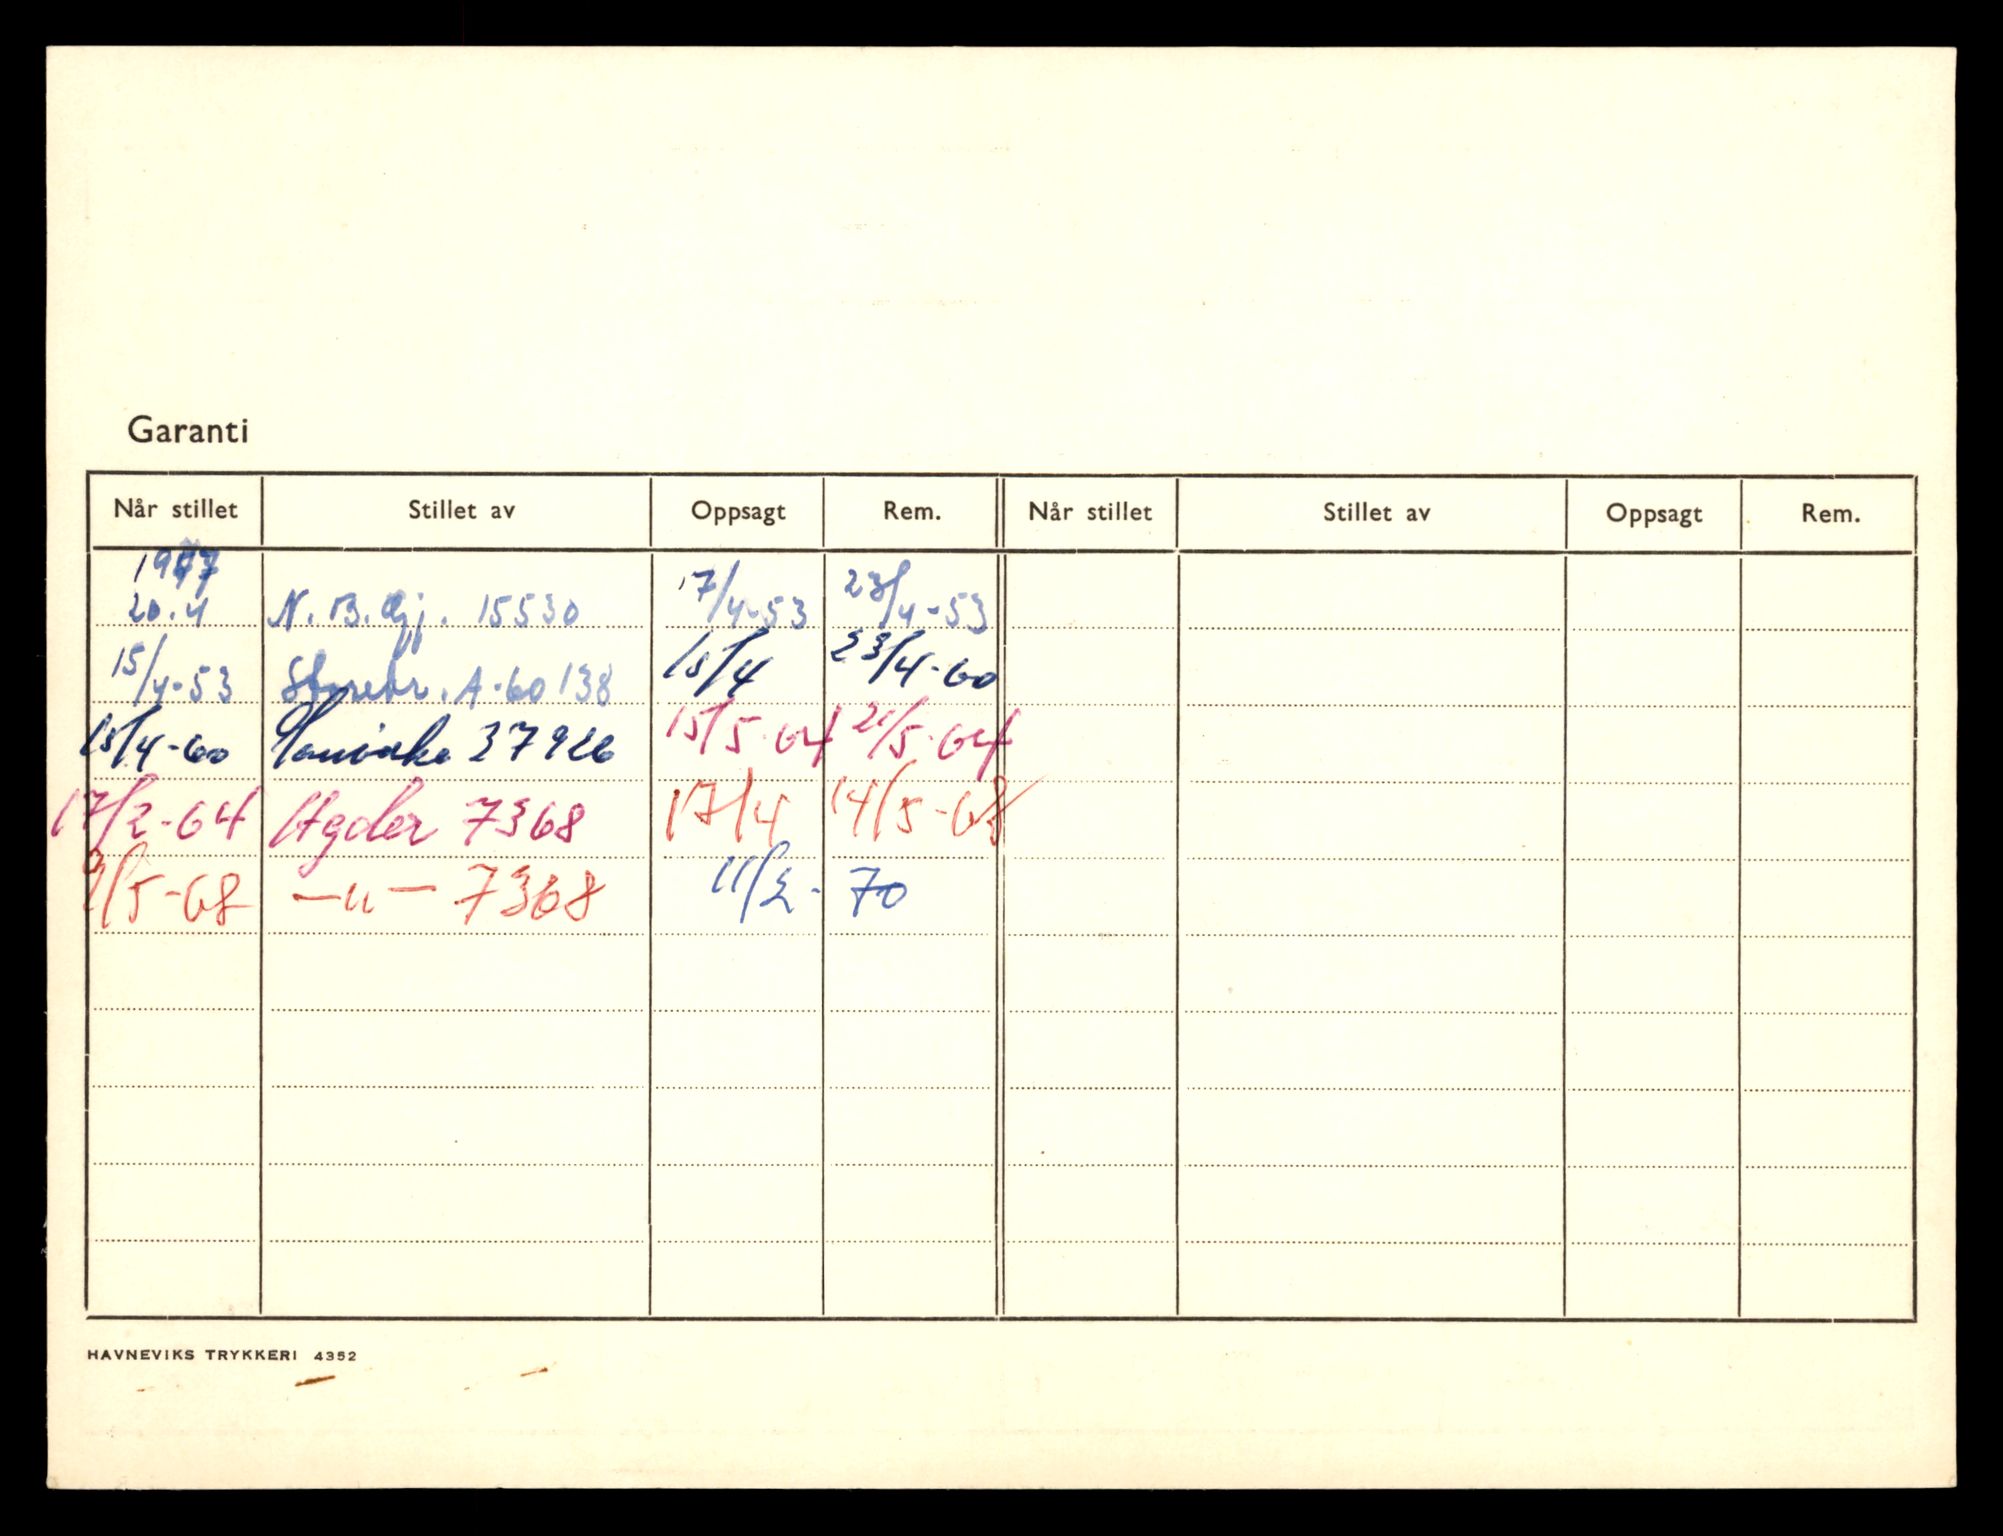 Garanti
Når stillet Stillet av Oppsagt Rem. Når stillet Stillet av Oppsagt Rem.
1947
20.4 N. B. Gj. 15530 17/4-53 23/4-53
15/4-53 Storebr. A-60138 15/4 23/4-60
15/4-60 37926 15/5-64 21/5-64
17/2-64 Agder 7368 17/4 14/5-68
9/5-68 —"— 7368 11/2- 70
HAVNEVIKS TRYKKERI 4352